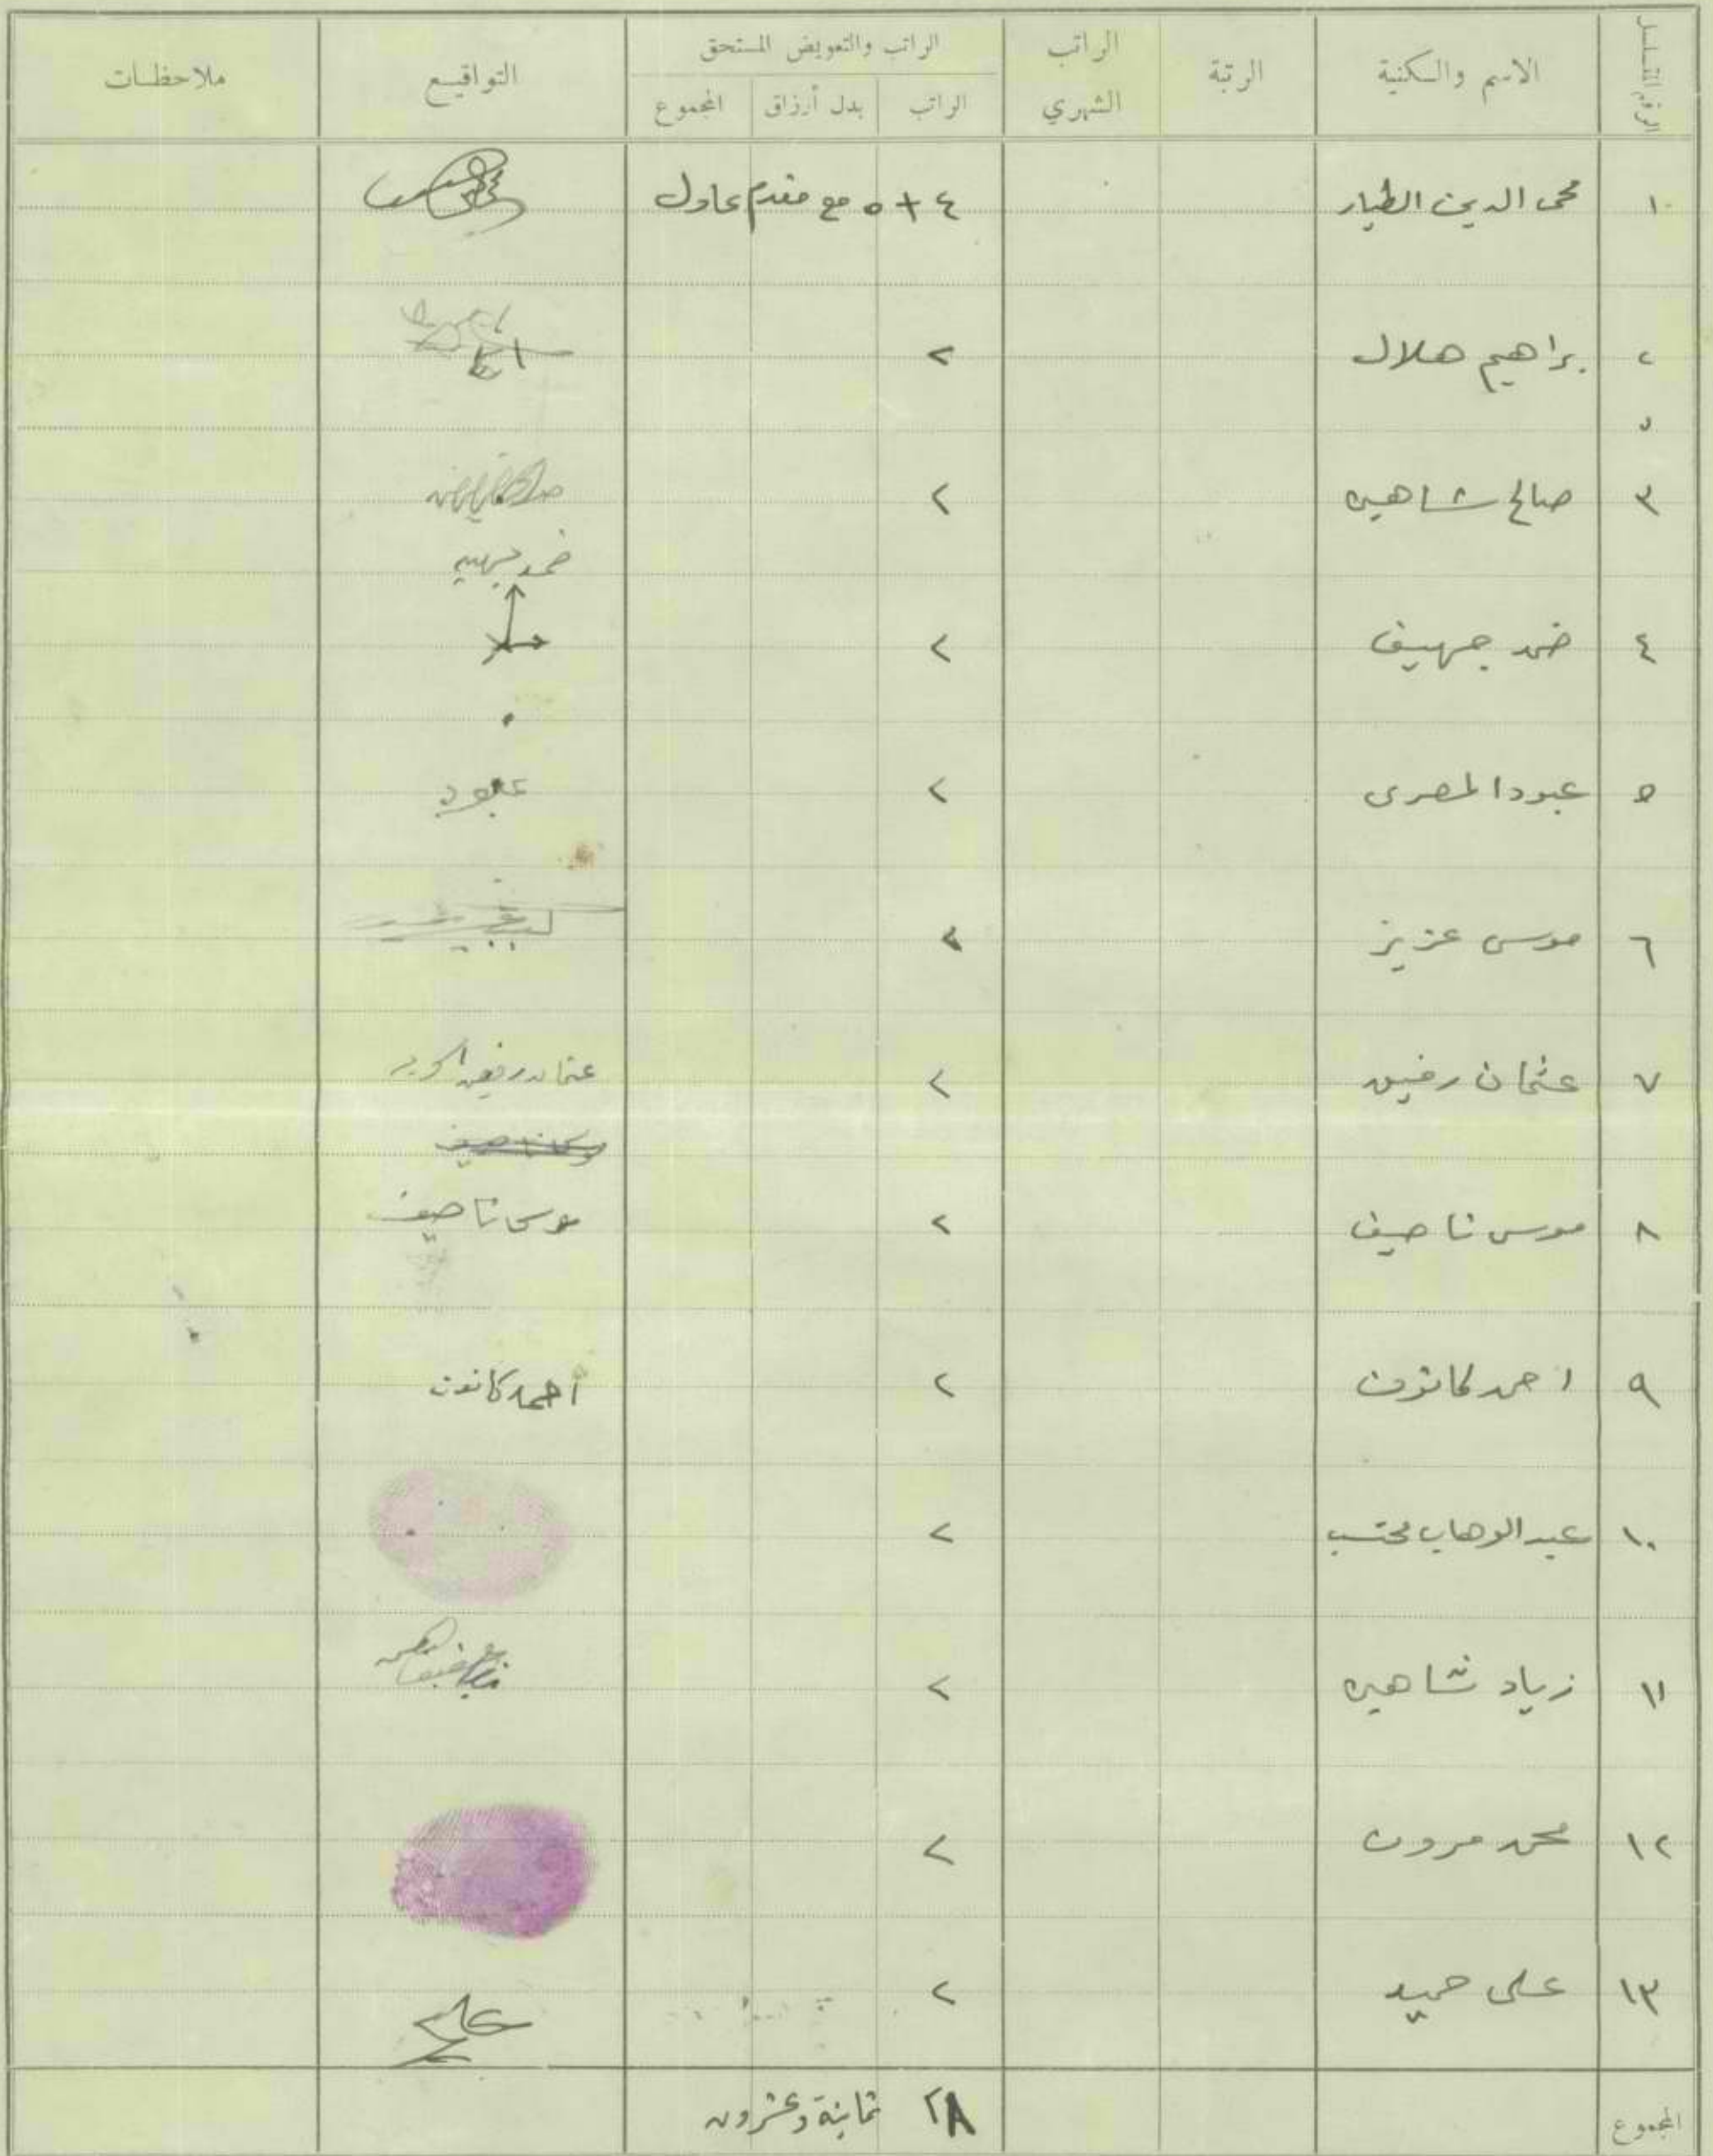 الرقم المتسلسل | الاسم والكنية | الرتبة | الراتب الشهري | الراتب والتعويض المستحق | التواقيع | ملاحظات
الراتب | بدل أرزاق | المجموع
١ | محي الدين الطيار | ٤ + ٥ مع مقدم عادل
٢ | براهيم هلال | ٢
٣ | صالح شاهين | ٢
ضمد جهيف
٤ | ضمد جهيف | ٢
٥ | عبود المصري | ٢ | عبود
٦ | موسى عزيز | ٢
٧ | عثمان رفيق | ٢ | عثمان رفيق
٨ | موسى ناصيف | ٢ | موسى ناصيف
٩ | احمد كانون | ٢ | أحمد كانون
١٠ | عبد الوهاب محتسب | ٢
١١ | زياد شاهين | ٢
١٢ | محمد مروان | ٢
١٣ | علي حميد | ٢ | علي
المجموع | ٢٨ ثمانية وعشرون